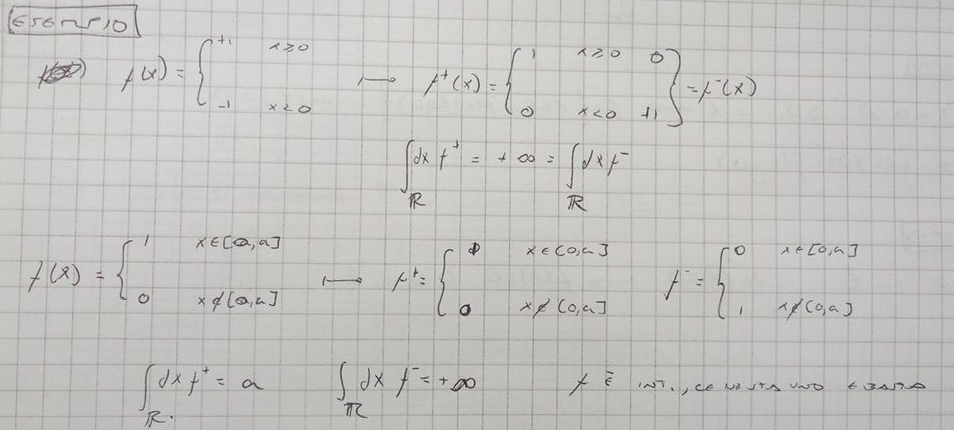 ESEMPIO
f(x) = { +1 x≥0 ; -1 x<0 ⟼ f⁺(x) = { 1 x≥0 0 ; 0 x<0 +1 } = f⁻(x)
∫_ℝ dx f⁺ = +∞ = ∫_ℝ dx f⁻
f(x) = { 1 x∈[0,a] ; 0 x∉[0,a] ⟼ f⁺ = { 1 x∈[0,a] ; 0 x∉[0,a] f⁻ = { 0 x∈[0,a] ; 1 x∉[0,a]
∫_ℝ dx f⁺ = a ∫_ℝ dx f⁻ = +∞ f È INT., CE NE STA UNO E BASTA